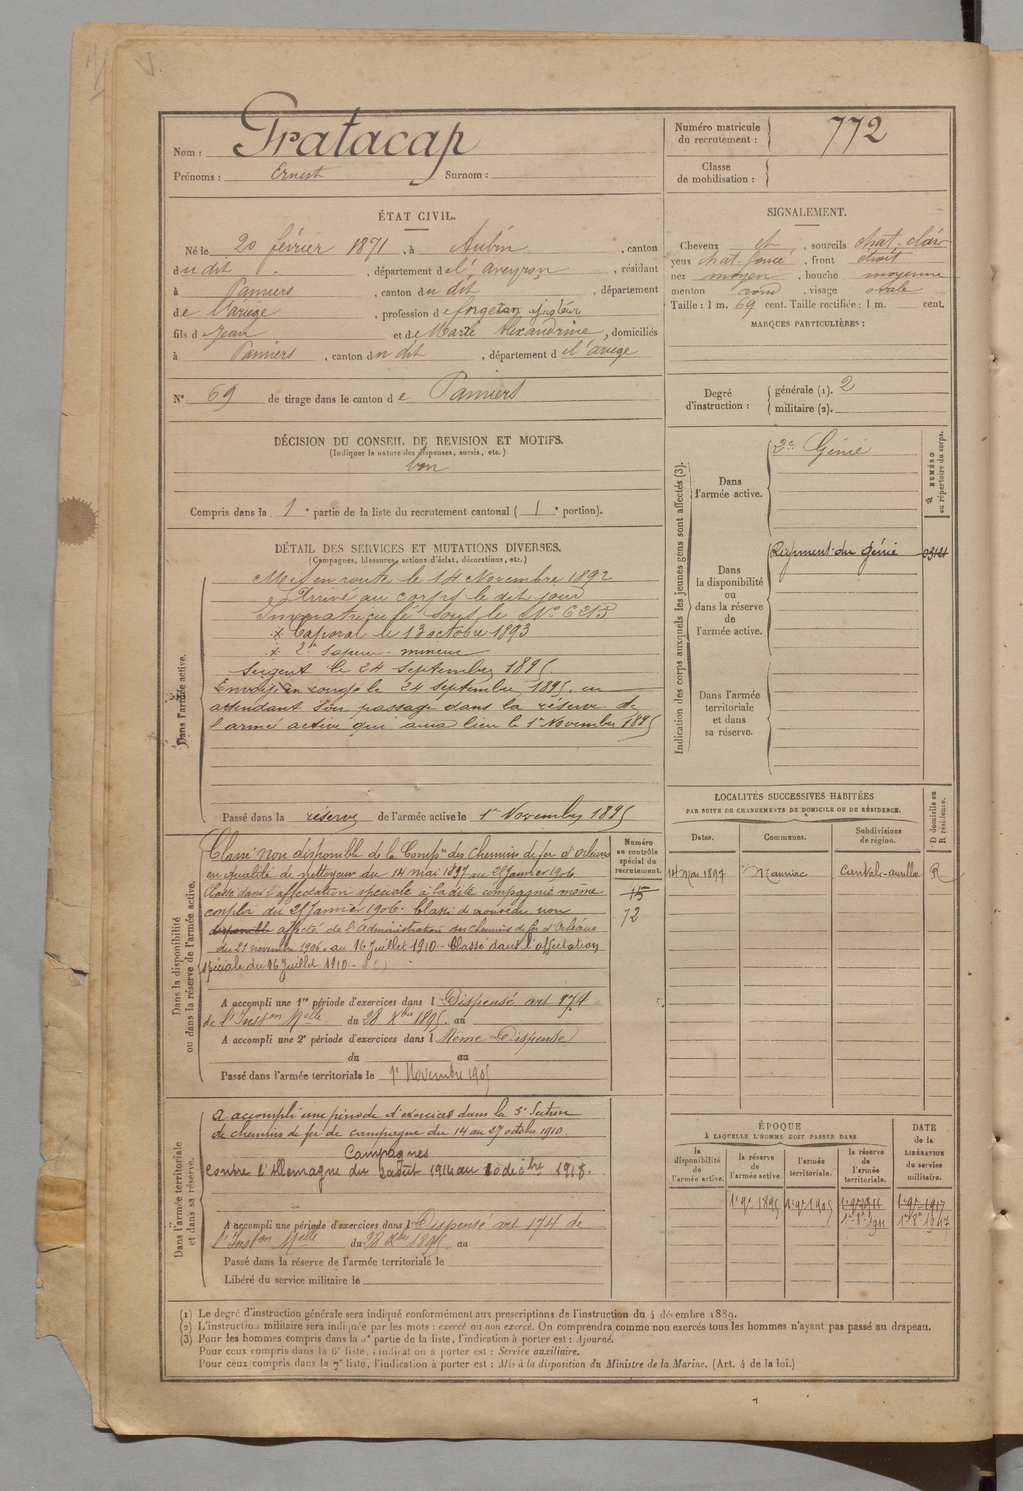 Nom : Pratacap
Prénoms : Ernest Surnom :
Numéro matricule du recrutement : 772
Classe de mobilisation :
ÉTAT CIVIL.
Né le 20 février 1871, à Aubin, canton
du dit, département de l'Aveyron, résidant
à Pamiers, canton du dit, département
de l'Ariège, profession de forgeron
fils de Jean et de Marie Alexandrine, domiciliés
à Pamiers, canton du dit, département de l'Ariège
N° 69 de tirage dans le canton de Pamiers
SIGNALEMENT.
Cheveux et, sourcils chat. clair
yeux chat. foncé, front étroit
nez moyen, bouche moyenne
menton rond, visage ovale
Taille : 1 m. 69 cent. Taille rectifiée : 1 m. cent.
MARQUES PARTICULIÈRES :
Degré d'instruction : générale (1). 2
militaire (2).
DÉCISION DU CONSEIL DE REVISION ET MOTIFS.
(Indiquer la nature des dispenses, sursis, etc.)
bon
Compris dans la 1e partie de la liste du recrutement cantonal ( 1e portion).
DÉTAIL DES SERVICES ET MUTATIONS DIVERSES.
(Campagnes, blessures, actions d'éclat, décorations, etc.)
Dans l'armée active.
Mis en route le 14 Novembre 1892
Arrivé au corps le dit jour
Immatriculé sous le No 6213
Caporal le 13 octobre 1893
2e sapeur-mineur
Sergent le 24 Septembre 1895.
Envoyé en congé le 24 Septembre 1895. en
attendant son passage dans la réserve de
l'armée active qui aura lieu le 1er Novembre 1895
Passé dans la réserve de l'armée active le 1er Novembre 1895
Indication des corps auxquels les jeunes gens sont affectés (3).
NUMÉRO au répertoire du corps.
Dans l'armée active.
2e Génie
Dans la disponibilité ou dans la réserve de l'armée active.
Régiment du Génie
Dans l'armée territoriale et dans sa réserve.
LOCALITÉS SUCCESSIVES HABITÉES
PAR SUITE DE CHANGEMENTS DE DOMICILE OU DE RÉSIDENCE.
Dates. Communes. Subdivisions de région. D domicile ou R résidence.
14 Mai 1897 Mauriac Cantal-Aurillac R
Dans la disponibilité ou dans la réserve de l'armée active.
Numéro au contrôle spécial du recrutement.
15
72
Classé non disponible de la Compie des chemins de fer d'Orléans
en qualité de nettoyeur du 14 mai 1897 au 21 Janvier 1906
Classé dans l'affectation spéciale à la dite compagnie même
emploi du 21 Janvier 1906. Classé de nouveau non
disponible affecté de l'administration des chemins de fer d'Orléans
du 21 novembre 1906 au 16 Juillet 1910 - Classé dans l'affectation
spéciale du 16 Juillet 1910 -
A accompli une 1re période d'exercices dans l Dispensé art 174
de l'Inston Melle du 28 Xbre 1895. au
A accompli une 2e période d'exercices dans l Même Dispense
du au
Passé dans l'armée territoriale le 1er Novembre 1905
Dans l'armée territoriale et dans sa réserve.
A accompli une période d'exercices dans la 5e Section
de chemins de fer de campagne du 14 au 27 octobre 1910.
Campagnes
Contre l'Allemagne du 2 août 1914 au 10 décbre 1918.
A accompli une période d'exercices dans l Dispensé art 174 de
l'Inston Melle du 28 Xbre 1895 au
Passé dans la réserve de l'armée territoriale le
Libéré du service militaire le
ÉPOQUE
À LAQUELLE L'HOMME DOIT PASSER DANS
la disponibilité de l'armée active. la réserve de l'armée active. l'armée territoriale. la réserve de l'armée territoriale.
DATE de la LIBÉRATION du service militaire.
1er 9bre 1895 1er 9bre 1905 1er 9bre 1911 1er 9bre 1917
(1) Le degré d'instruction générale sera indiqué conformément aux prescriptions de l'instruction du 4 décembre 1889.
(2) L'instruction militaire sera indiquée par les mots : exercé ou non exercé. On comprendra comme non exercés tous les hommes n'ayant pas passé au drapeau.
(3) Pour les hommes compris dans la 5e partie de la liste, l'indication à porter est : Ajourné.
Pour ceux compris dans la 6e liste, l'indication à porter est : Service auxiliaire.
Pour ceux compris dans la 7e liste, l'indication à porter est : Mis à la disposition du Ministre de la Marine. (Art. 4 de la loi.)